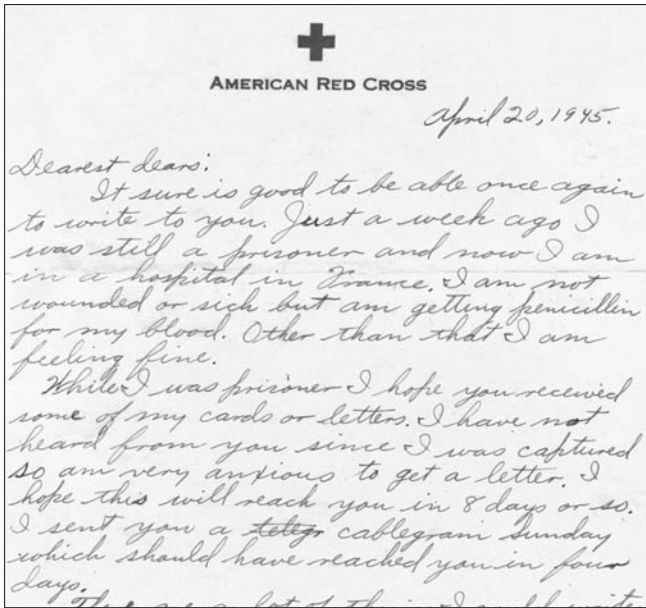 AMERICAN RED CROSS
April 20, 1945.
Dearest dears:
It sure is good to be able once again
to write to you. Just a week ago I
was still a prisoner and now I am
in a hospital in France. I am not
wounded or sick but am getting penicillin
for my blood. Other than that I am
feeling fine.
While I was prisoner I hope you received
some of my cards or letters. I have not
heard from you since I was captured
so am very anxious to get a letter. I
hope this will reach you in 8 days or so.
I sent you a telegr cablegram Sunday
which should have reached you in four
days.